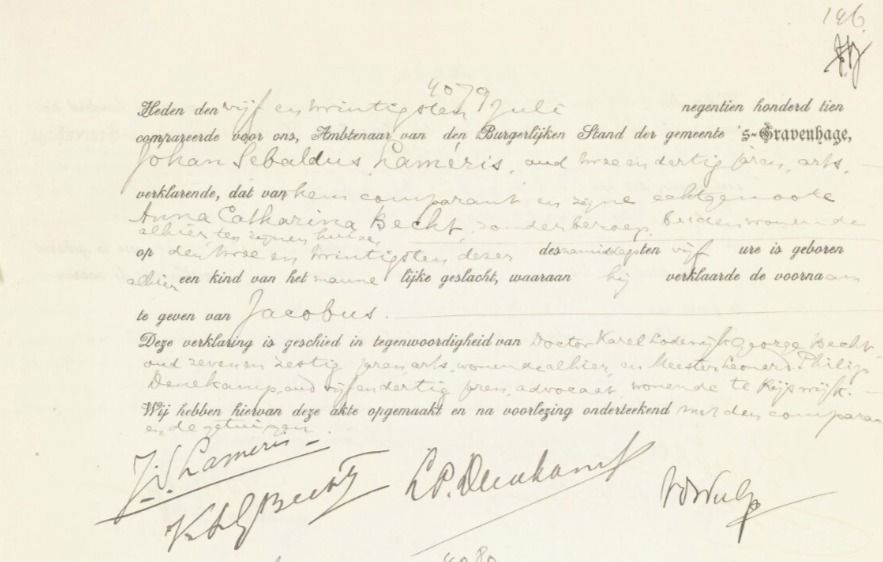 196.
4079
Heden den vijf en twintigsten Juli negentien honderd tien
compareerde voor ons, Ambtenaar van den Burgerlijken Stand der gemeente 's-Gravenhage,
Johan Sebaldus Laméris, oud twee en dertig jaren, arts,
verklarende, dat van hem comparant en zijne echtgenoote
Anna Catharina Becht, zonder beroep, beiden wonende
alhier ten zijnen huize,
op den twee en twintigsten dezer des namiddags ten vijf ure is geboren
alhier een kind van het manne lijke geslacht, waaraan hij verklaarde de voornaam
te geven van Jacobus.
Deze verklaring is geschied in tegenwoordigheid van Doctor Karel Lodewijk George Becht
oud zeven en zestig jaren, arts, wonende alhier, en Meester Leonard Philip
Denekamp, oud vijf en dertig jaren, advocaat, wonende te Rijswijk.
Wij hebben hiervan deze akte opgemaakt en na voorlezing onderteekend met den comparant
en de getuigen.
J. S. Lameris
K L G Becht
L. P. Denekamp
4080